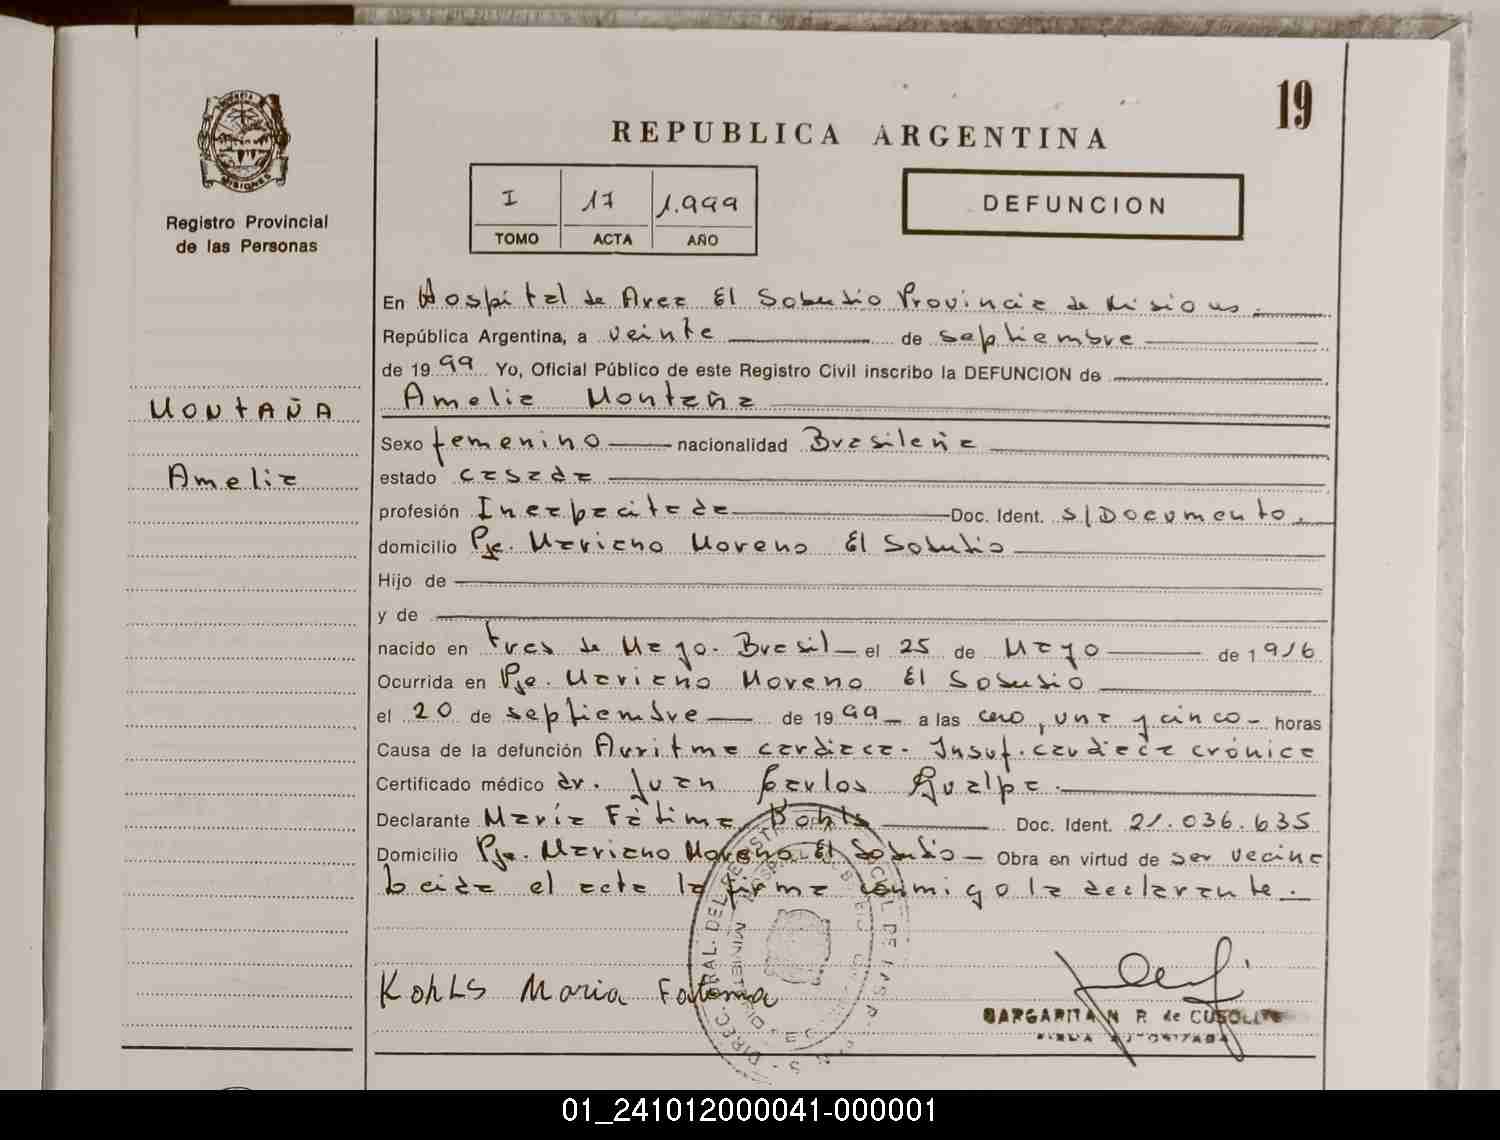 19
REPUBLICA ARGENTINA
MISIONES
Registro Provincial
de las Personas
I 17 1.999
TOMO ACTA AÑO
DEFUNCION
MONTAÑA
Amelia
En Hospital de Area El Soberbio Provincia de Misiones.
República Argentina, a veinte de septiembre
de 1999 Yo, Oficial Público de este Registro Civil inscribo la DEFUNCION de
Amelia Montaña
Sexo femenino nacionalidad Brasileña
estado casada
profesión Incapacitada Doc. Ident. S/Documento.
domicilio Pje. Mariano Moreno El Soberbio
Hijo de
y de
nacido en tres de Mayo. Brasil el 25 de Mayo de 1916
Ocurrida en Pje. Mariano Moreno El Soberbio
el 20 de septiembre de 1999 a las cero, una y cinco horas
Causa de la defunción Arritma cardiaca. Insuf. cardiaca crónica
Certificado médico dr. Juan Carlos Gualpa.
Declarante María Fátima Kohls Doc. Ident. 21.036.635
Domicilio Pje. Mariano Moreno El Soberbio Obra en virtud de ser vecina
Leida el acta la firma conmigo la declarante.
Kohls Maria Fatima
MARGARITA N. R. de
FIRMA AUTORIZADA
01_241012000041-000001